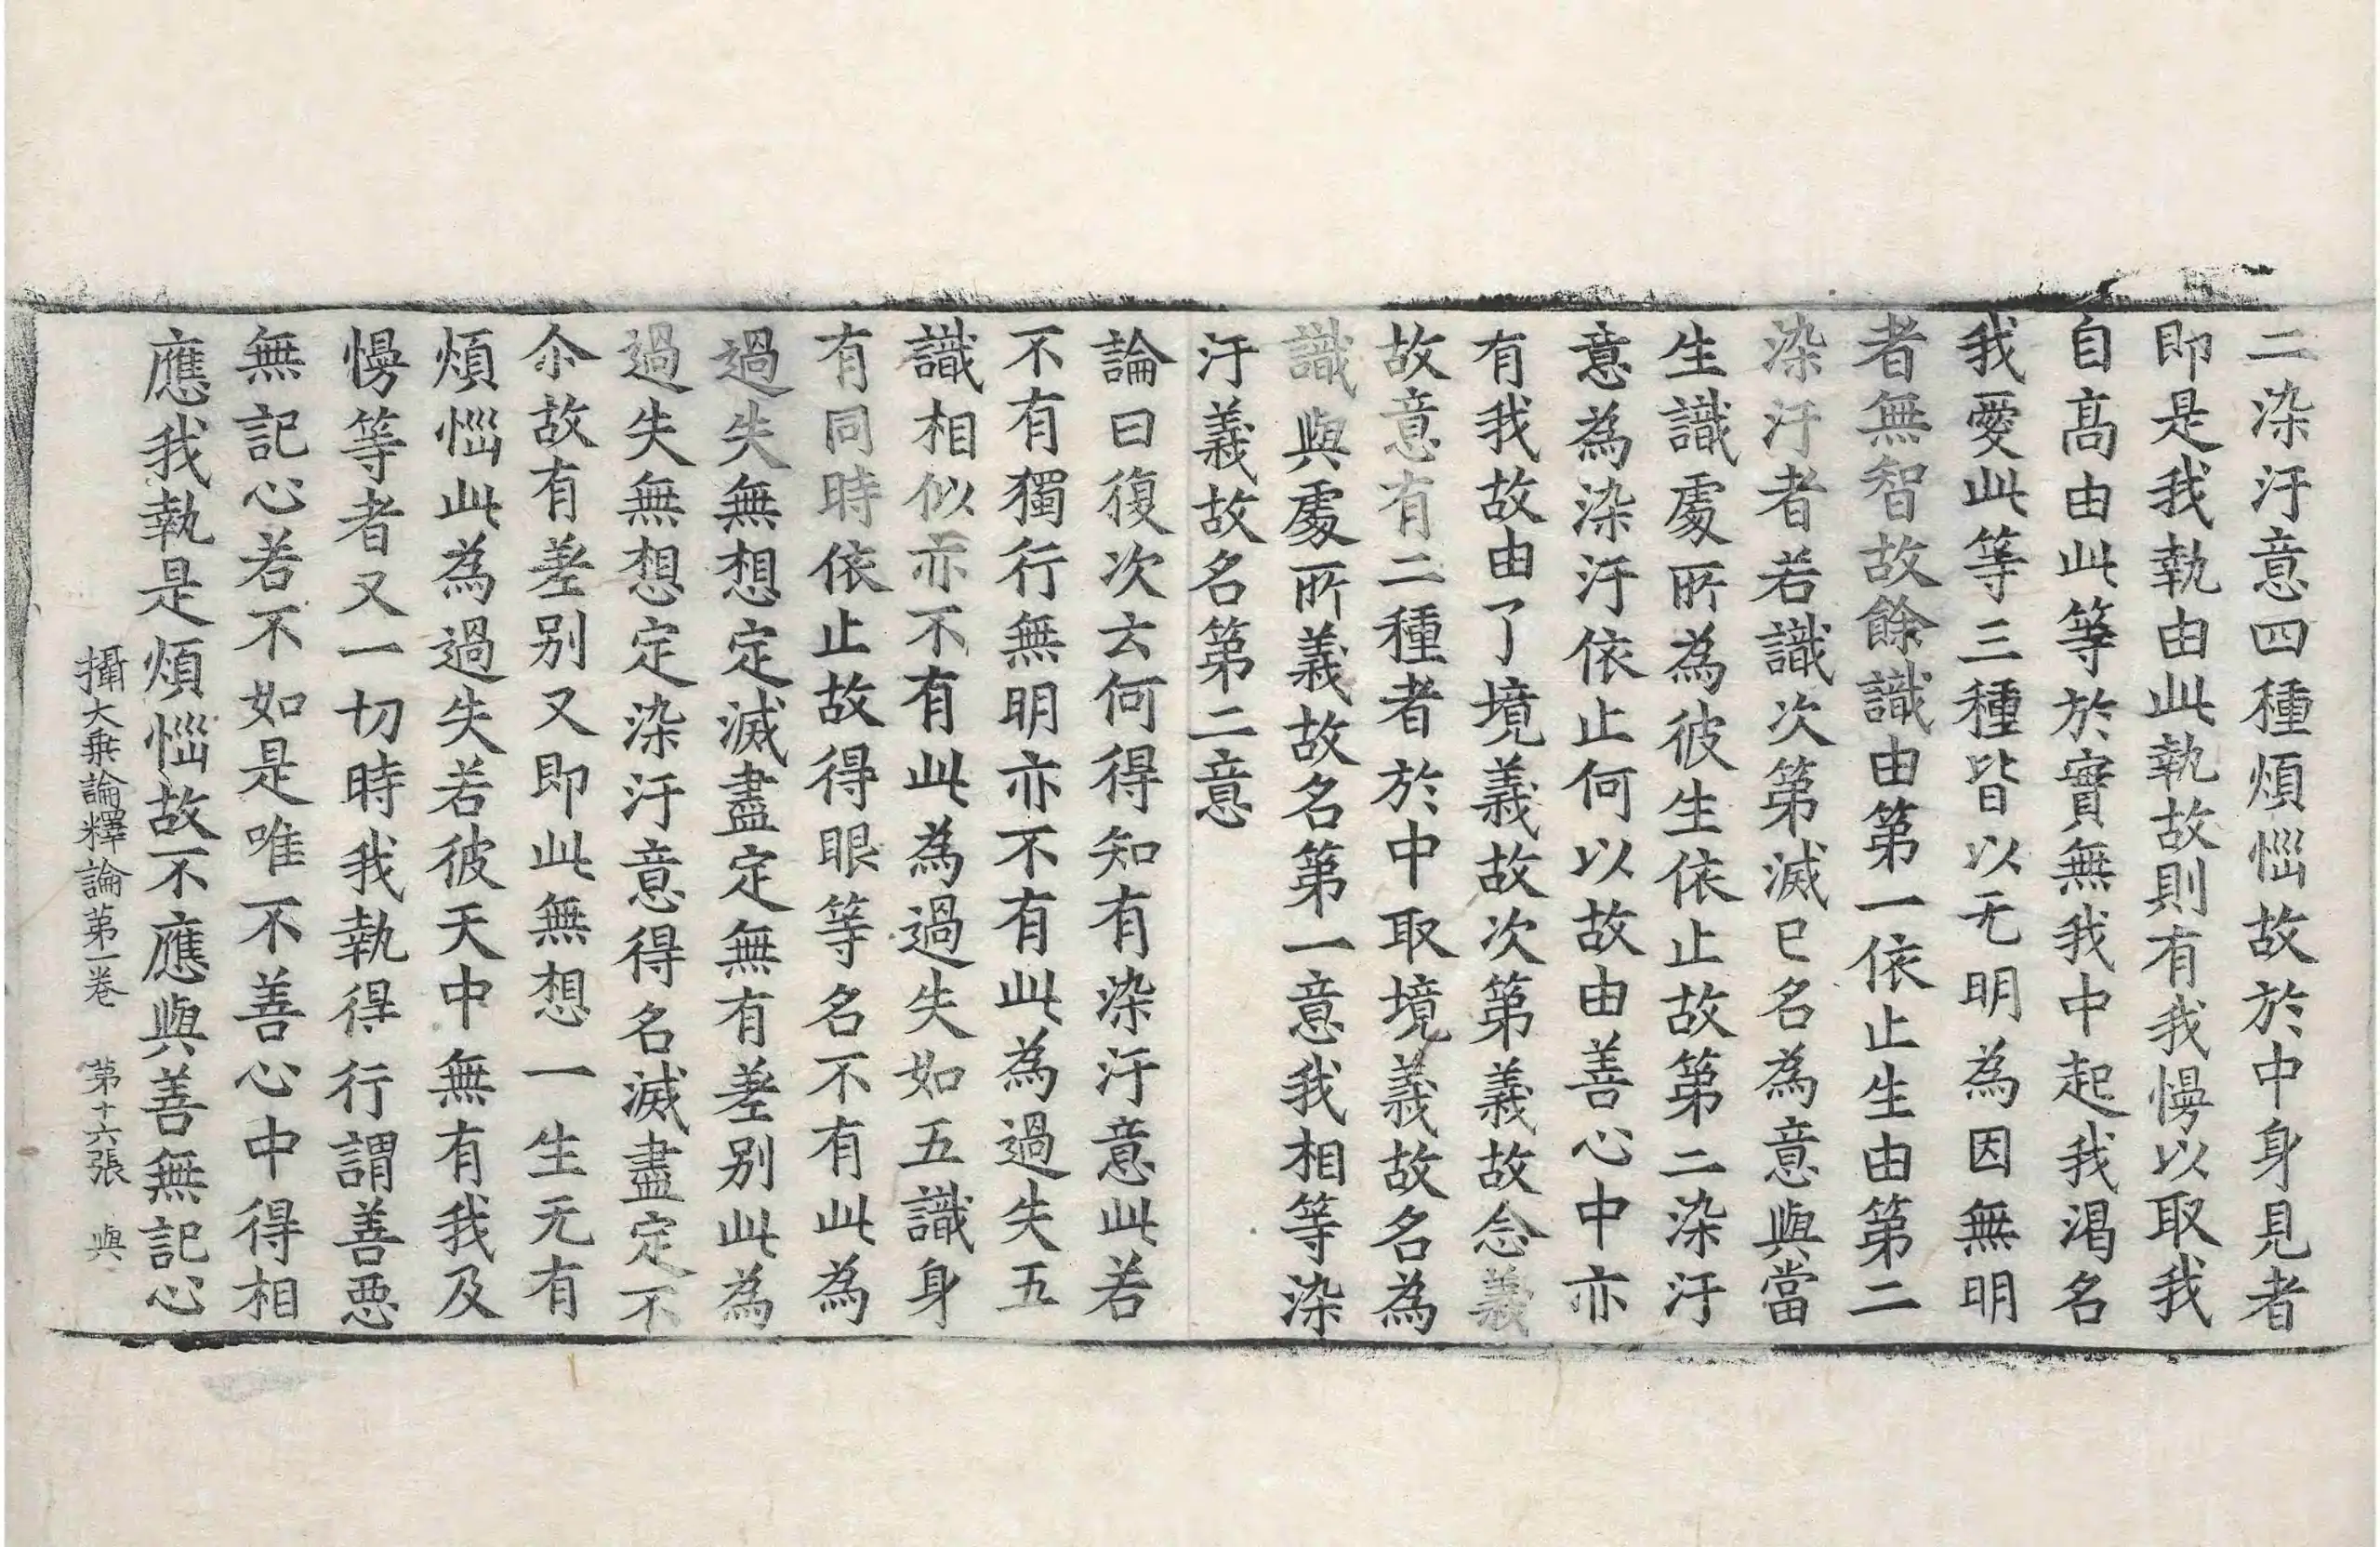 二染汙意四種煩惱故於中身見者
即是我執由此執故則有我慢以取我
自高由此等於實無我中起我渴名
我愛此等三種皆以无明為因無明
者無智故餘識由第一依止生由第二
染汙者若識次第滅已名為意與當
生識處所為彼生依止故第二染汙
意為染汙依止何以故由善心中亦
有我故由了境義故次第義故念義
故意有二種者於中取境義故名為
識與處所義故名第一意我相等染
汙義故名第二意
論曰復次云何得知有染汙意此若
不有獨行無明亦不有此為過失五
識相似亦不有此為過失如五識身
有同時依止故得眼等名不有此為
過失無想定滅盡定無有差別此為
過失無想定染汙意得名滅盡定不
尒故有差別又即此無想一生无有
煩惱此為過失若彼天中無有我及
慢等者又一切時我執得行謂善惡
無記心若不如是唯不善心中得相
應我執是煩惱故不應與善無記心
攝大乘論釋論第一卷 第十六張 與